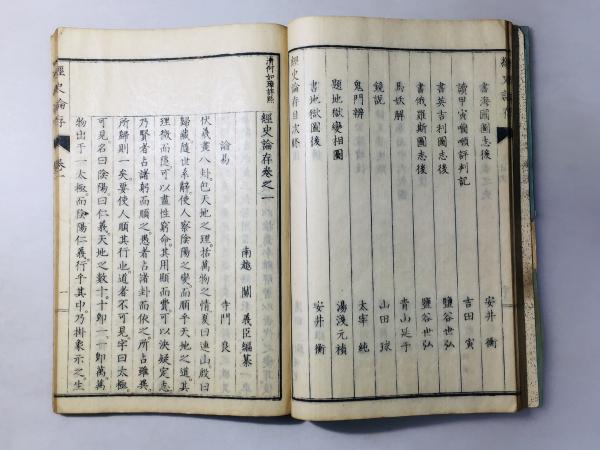 書海國圖志後 安井 衡
讀甲寅囈噸評判記 吉田 寅
書英吉利圖志後 鹽谷世弘
書俄羅斯圖志後 鹽谷世弘
馬妖解 青山延于
鏡說 山田 球
鬼門辨 太宰 純
題地獄變相圖 湯淺元禎
書地獄圖後 安井 衡
經史論存目次終
清何如璋評點
經史論存卷之一
南越 關 義臣編纂
論易 寺門 良
伏羲畫八卦包天地之理括萬物之情夏曰連山殷曰
歸藏隨世系解使人察陰陽之變而順乎天地之道其
理微而隱可以盡性窮命其用顯而費可以決疑定志
乃賢者占諸躬而順之愚者占諸卦而依之所占雖異
所歸則一矣要使人順其行也道者不可見字曰太極
可見名曰陰陽曰仁義天地之數十十卽一一卽萬萬
物出于一太極而陰陽仁義行乎其中乃掛象示之生
經史論存 卷一 一